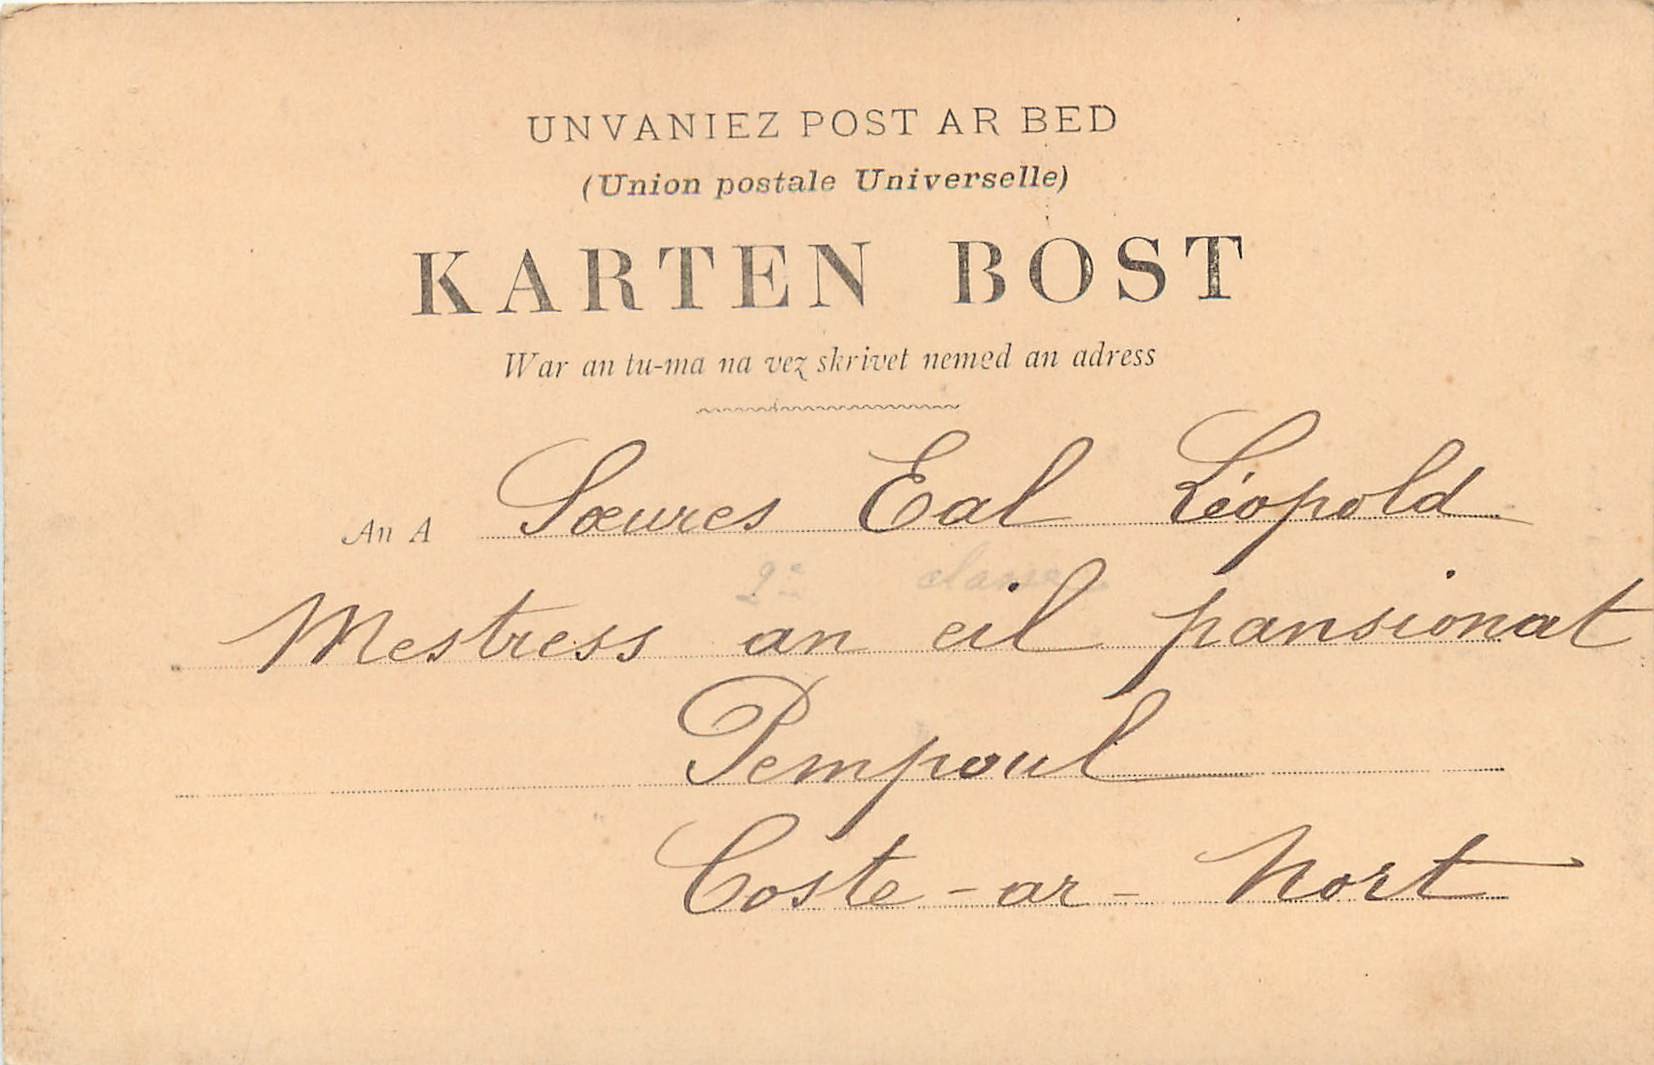 UNVANIEZ POST AR BED
(Union postale Universelle)
KARTEN BOST
War an tu-ma na vez skrivet nemed an adress
An A Sœures Eal Léopold
2e classe
Mestress an eil pansionat
Pempoul
Coste-ar-Nort